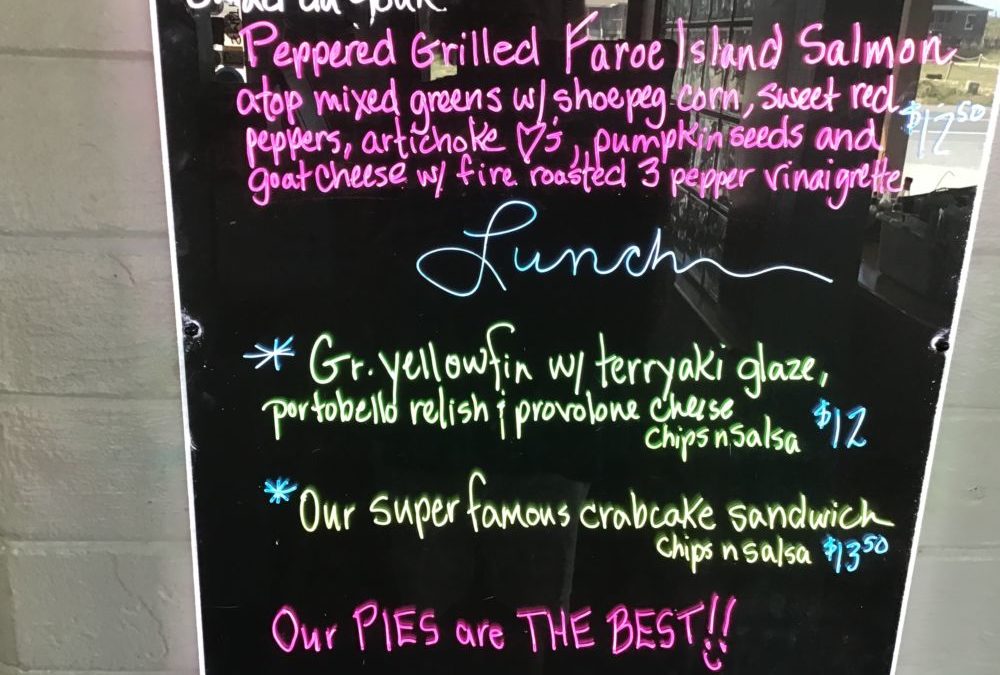 Peppered Grilled Faroe Island Salmon
atop mixed greens w/ shoepeg corn, sweet red
peppers, artichoke ♡'s, pumpkin seeds and $12.50
goat cheese w/ fire roasted 3 pepper vinaigrette
Lunch
* Gr. yellowfin w/ terryaki glaze,
portobello relish & provolone cheese
chips n salsa $12
* Our super famous crabcake sandwich
chips n salsa $13.50
Our PIES are THE BEST!!